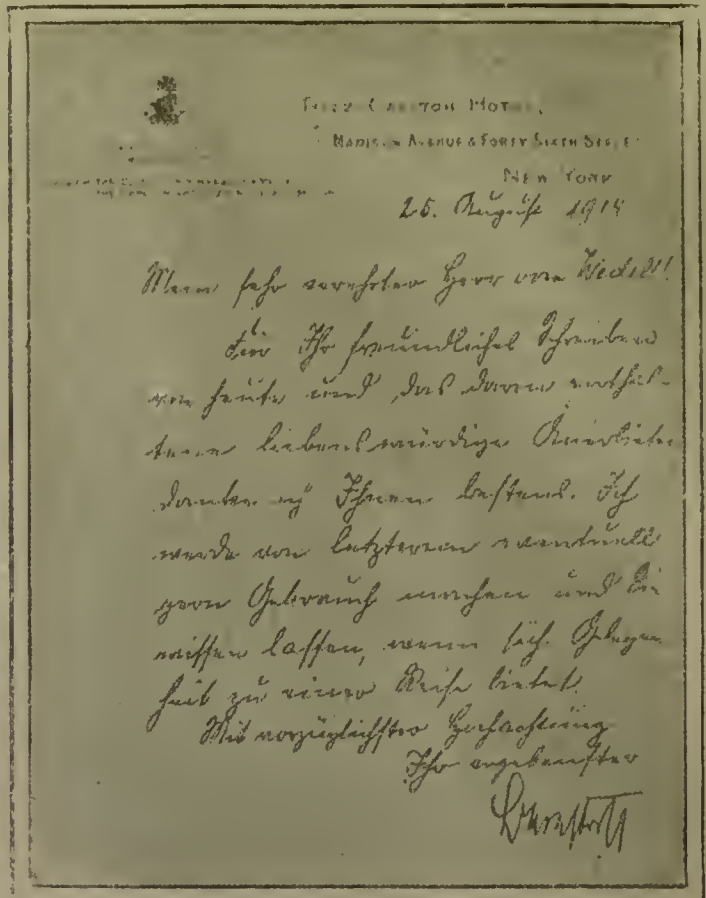 RITZ-CARLTON HOTEL,
MADISON AVENUE & FORTY SIXTH STREET
NEW YORK
25. August 1914
Mein sehr verehrter Herr von Wedell!
Für Ihr freundliches Schreiben
von heute und das darin enthal-
tene liebenswürdige Anerbieten
danke ich Ihnen bestens. Ich
werde von letzterem eventuell
gern Gebrauch machen und Sie
wissen lassen, wenn sich Gelegen
heit zu einer Reise bietet.
Mit vorzüglichster Hochachtung
Ihr ergebenster
Bernstorff